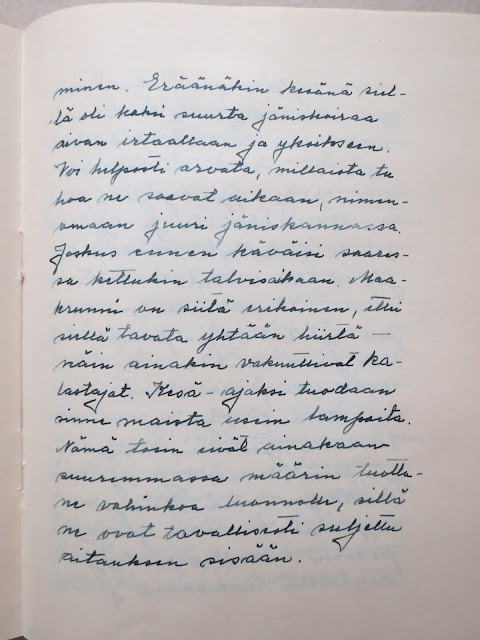 minen. Eräänäkin kesänä siel-
lä oli kaksi suurta jäniskoiraa
aivan irtaallaan ja yksikseen.
Voi helposti arvata, millaista tu
hoa ne saavat aikaan, nimen-
omaan juuri jäniskannassa.
Joskus ennen käväisi saares-
sa kettukin talvisaikaan. Maa-
krunni on siitä erikoinen, ettei
siellä tavata yhtään hiirtä —
näin ainakin vakuuttivat ka-
lastajat. Kesä-ajaksi tuodaan
sinne maista usein lampaita.
Nämä tosin eivät ainakaan
suuremmassa määrin tuotta-
ne vahinkoa luonnolle, sillä
ne ovat tavallisesti suljettu
aitauksen sisään.